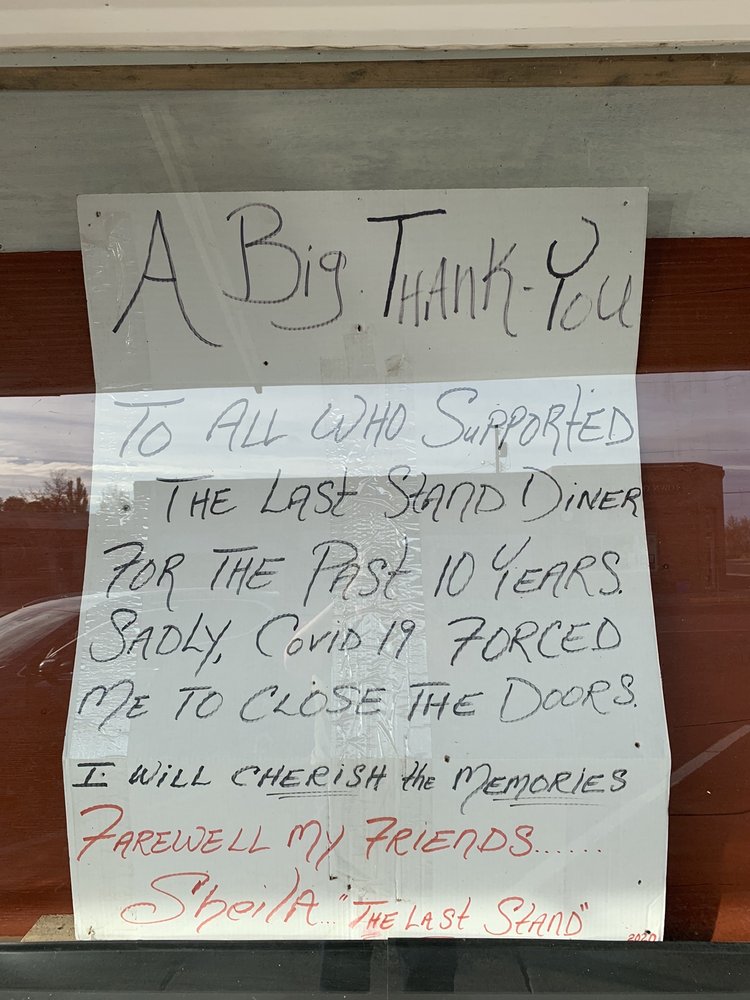 A Big THANK-YOU
TO ALL WHO SUPPORTED
THE LAST STAND DINER
FOR THE PAST 10 YEARS.
SADLY, COVID 19 FORCED
ME TO CLOSE THE DOORS.
I WILL CHERISH the MEMORIES
FAREWELL MY FRIENDS......
SheilA... "THE LAST STAND"
2020